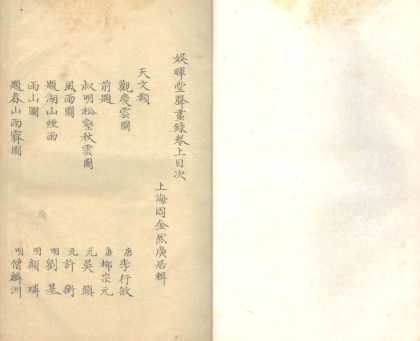 娛暉堂聲畫錄卷上目次
上海周金然廣居輯
天文類
觀慶雲圖 唐李行敏
前題 唐柳宗元
叔明松壑秋雲圖 元吳鎮
風雨圖 元許衡
題湖山煙雨 明劉基
雨山圖 明顧璘
題春山雨霽圖 明僧麟洲